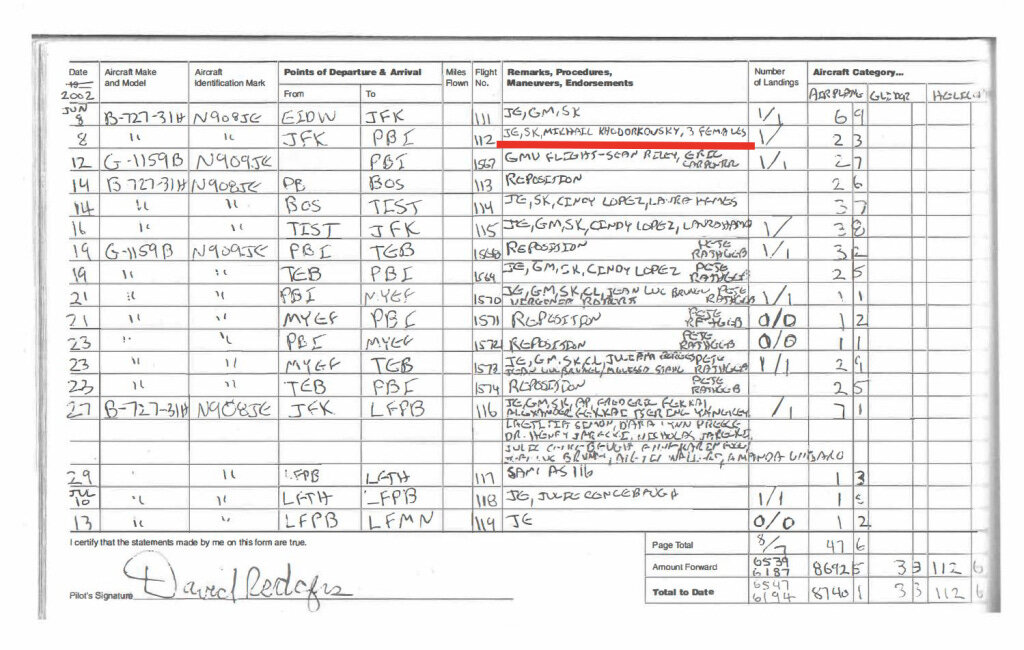 Date
19
2002
Aircraft Make and Model
Aircraft Identification Mark
Points of Departure & Arrival
From
To
Miles Flown
Flight No.
Remarks, Procedures, Maneuvers, Endorsements
Number of Landings
Aircraft Category...
AIRPLANE GLIDER
JUN
8 B-727-31H N908JE EIDW JFK 111 JE, GM, SK 1/1 6 9
8 " " JFK PBI 112 JE, SK, MICHAIL KHODORKOVSKY, 3 FEMALES 1/ 2 3
12 G-1159B N909JE PBI 1567 GMU FLIGHT-SEAN RILEY, ERIC CARPENTER 1/1 2 7
14 B-727-31H N908JE PB BOS 113 REPOSITION 2 6
14 " " BOS TIST 114 JE, SK, CINDY LOPEZ, 3 7
16 " " TIST JFK 115 JE, GM, SK, CINDY LOPEZ, 1/ 3 8
19 G-1159B N909JE PBI TEB REPOSITION PETE RATHGEB 1/1 3 2
19 " " TEB PBI 1569 JE, GM, SK, CINDY LOPEZ PETE RATHGEB 2 5
21 " " PBI MYEF 1570 JE, GM, SK, CL, JEAN LUC BRUNEL, PETE RATHGEB 1/1 1 1
21 " " MYEF PBI 1571 REPOSITION PETE RATHGEB 0/0 1 2
23 " " PBI MYEF 1572 REPOSITION PETE RATHGEB 0/0 1 1
23 " " MYEF TEB 1573 JE, GM, SK, CL, 1/1 2 9
23 " " TEB PBI 1574 REPOSITION PETE RATHGEB 2 5
27 B-727-31H N908JE JFK LFPB 116 JE, GM, SK, AP, FREDERIC FEKKAI, /1 7 1
ALEXANDER FEKKAI
DR. HENRY JARECKI, NICHOLAS JARECKI,
29 " LFPB LFTH 117 SAM AS 116 1 3
JUL
10 " " LFTH LFPB 118 JE, JULIE 1/1 1
13 " " LFPB LFMN 119 JE 0/0 1 2
I certify that the statements made by me on this form are true.
Pilot's Signature David Rodgers
Page Total 8/7 47 6
Amount Forward 6539 6187 8692 5 3 3 112 6
Total to Date 6547 6194 8740 1 3 3 112 6